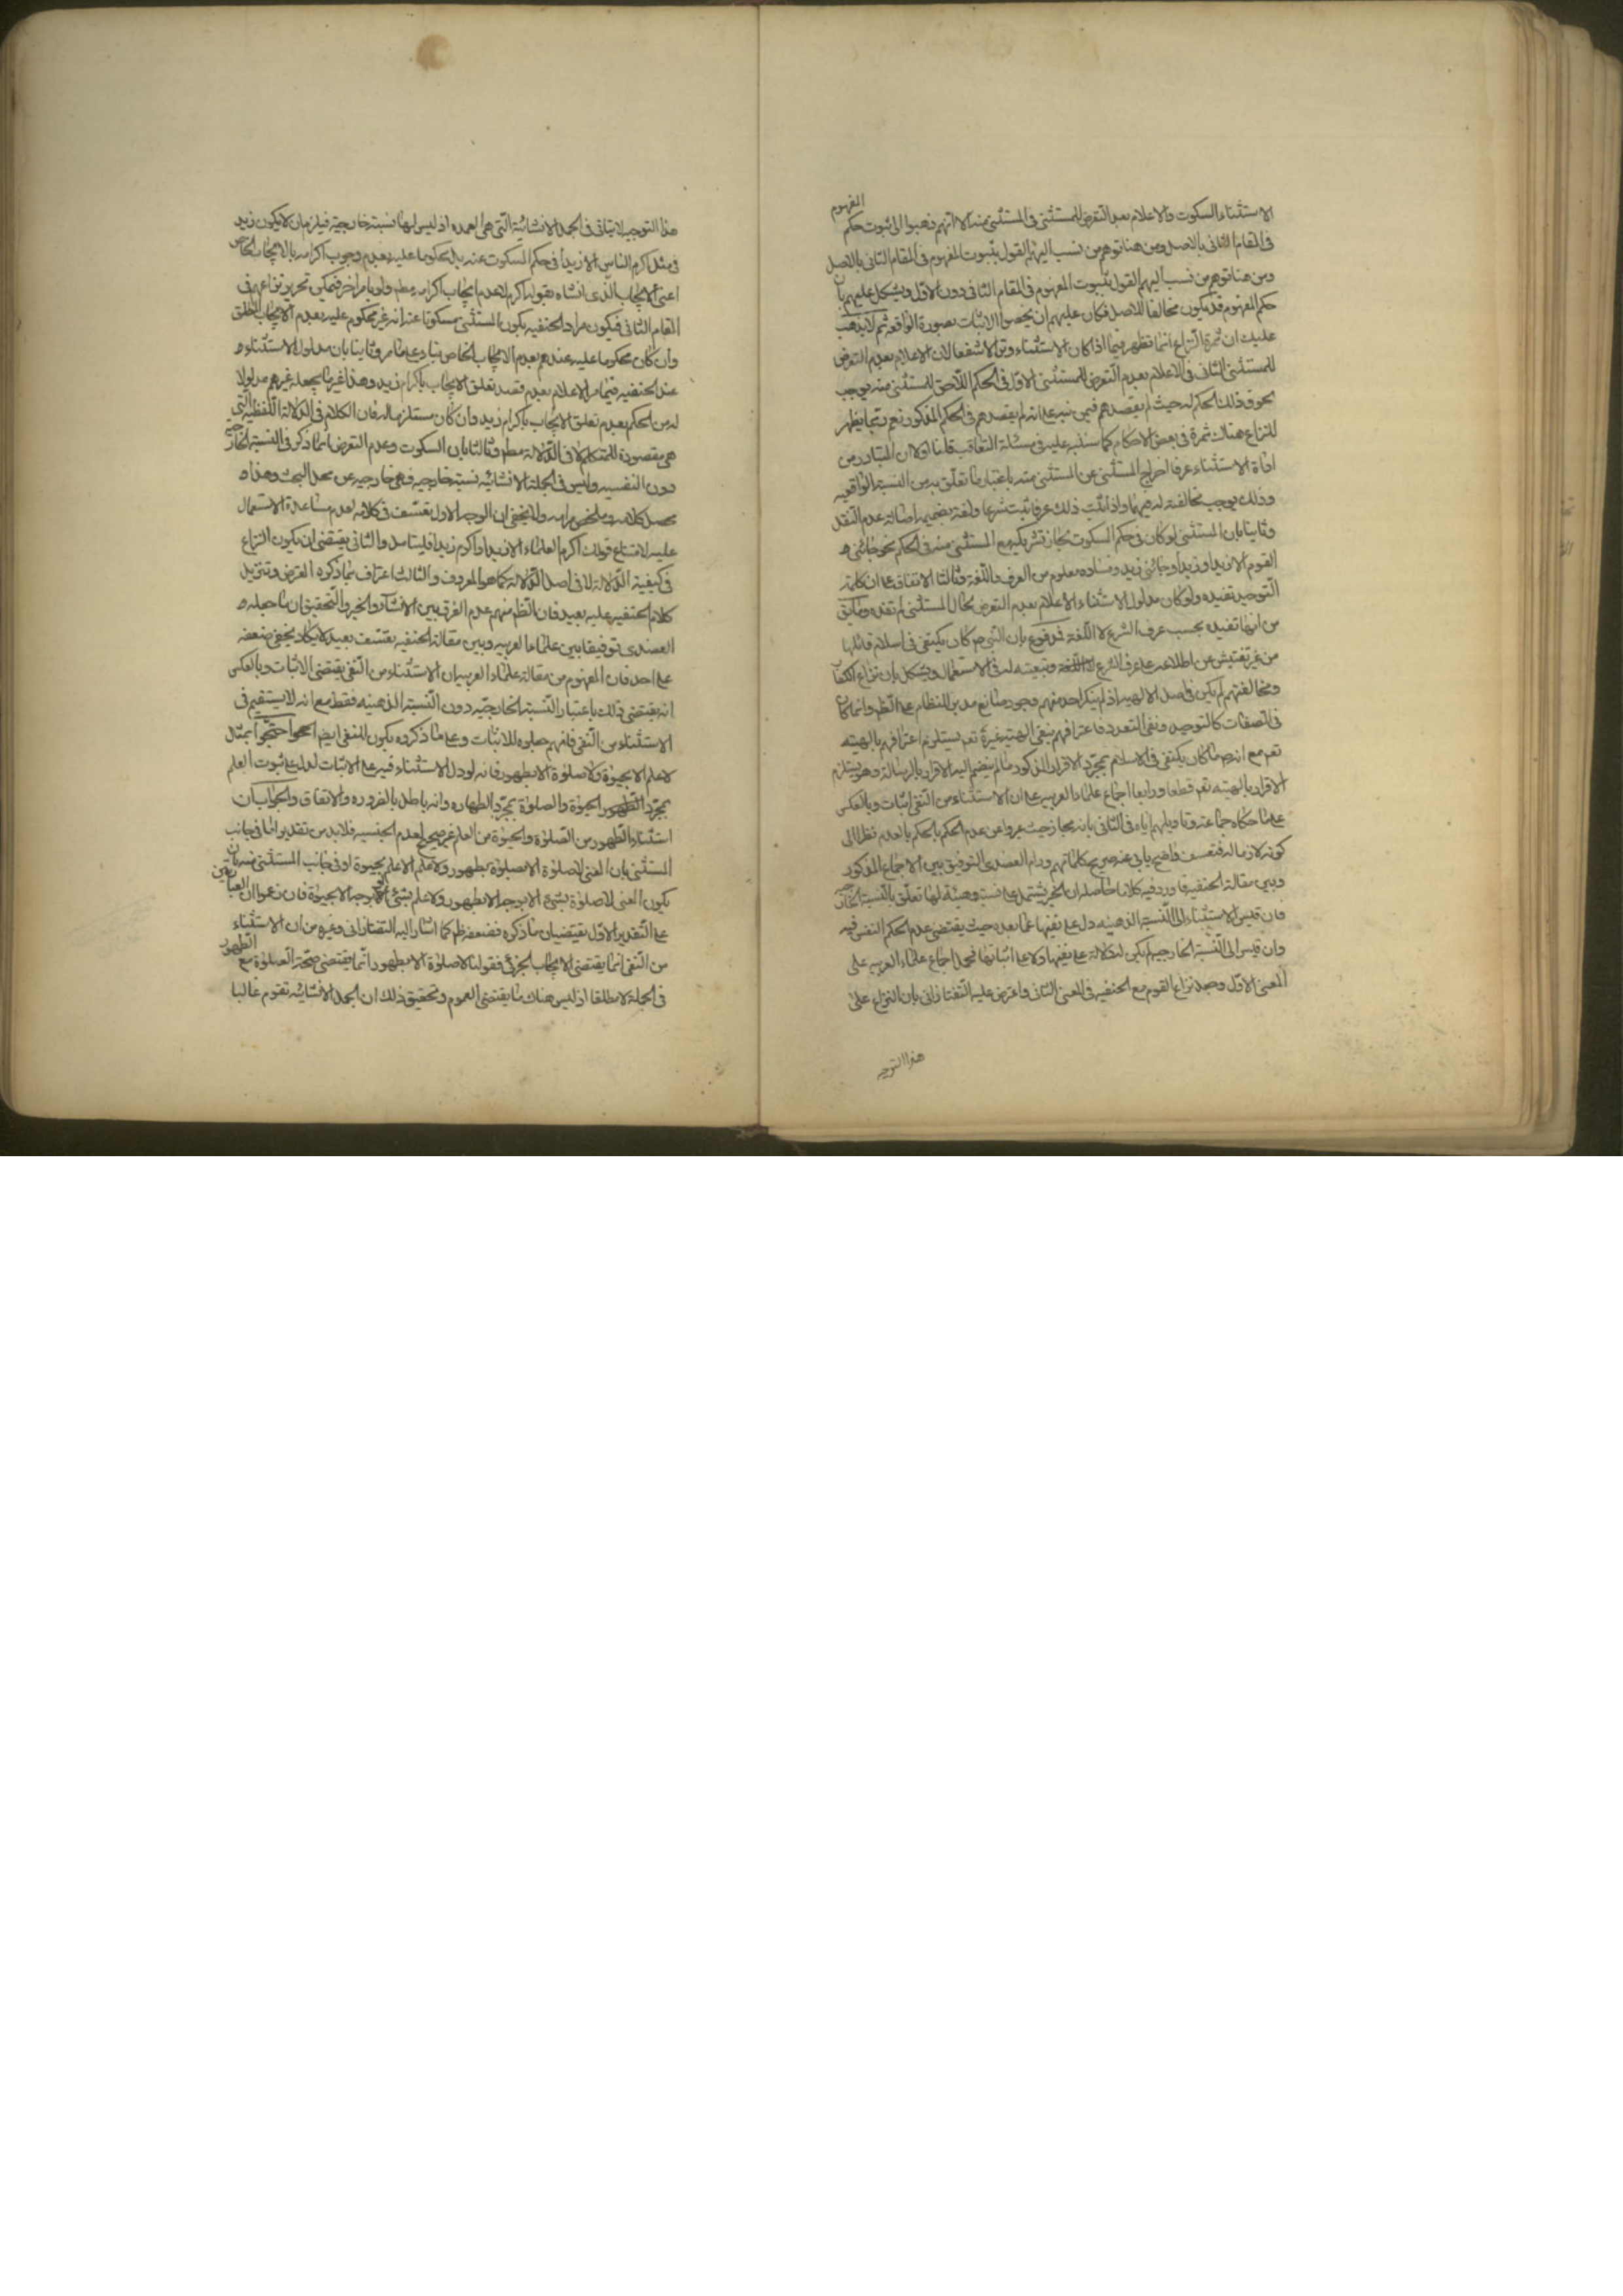 الاستثناء السكوت والاعلام بعد التعرض للمستثنى فى المستثنى منه الا انهم ذهبوا الى ثبوت حكم المفهوم
فى المقام الثانى بالاصل ومن هنا توهم من نسب اليهم القول بثبوت المفهوم فى المقام الثانى بالاصل
ومن هنا توهم من نسب اليهم القول بثبوت المفهوم فى المقام الثانى دون الاول ويشكل عليهم بان
حكم المفهوم قد يكون مخالفا للاصل فكان عليهم ان يخصوا الاثبات بصورة الواقعة ثم لا يذهب
عليك ان ثمرة النزاع انما تظهر فيما اذا كان الاستثناء وتوالا شفعا لان الاعلام بعدم التعرض
للمستثنى الثانى فى الاعلام بعدم التعرض للمستثنى الاول فى الحكم اللاحق للمستثنى منه يوجب
لحوق ذلك الحكم له حيث لم يقصدهم فيمن نبه على انه لم يقصدهم فى الحكم المذكور نعم ربما يظهر
للنزاع هناك ثمرة فى بعض الاحكام كما سننبه عليه فى مسئلة التعاقب قلنا اولا ان المتبادر من
اداة الاستثناء عرفا اخراج المستثنى عن المستثنى منه باعتبار ما تعلق به من النسبة الواقعيه
وذلك يوجب مخالفته له فيهما واذا ثبت ذلك عرفا ثبت شرعا ولغة بضميمة اصالة عدم النقل
وثانيا بان المستثنى لو كان فى حكم السكوت لجاز تشريكه مع المستثنى منه فى الحكم نحو جائنى
القوم الا زيدا وزيد او جائنى زيد وفساده معلوم من العرف واللغة وثالثا الاتفاق على ان كلمة
التوحيد تفيده ولو كان مدلول الاستثناء الاعلام بعدم التعرض لحال المستثنى لم تفده وما يق
من انها تفيده بحسب عرف الشرع لا اللغة فمدفوع بان النبى ص كان يكتفى فى اسلام قائلها
من غير تفتيش عن اطلاعه على عرف الشرع وتبعيته له فى الاستعمال ويشكل بان نزاع الكفار
ومخالفتهم لم يكن فى اصل الالهيه اذ لم ينكر احد منهم وجود صانع مدبر للنظام على الظ وانما كان
فى الصفات كالتوحيد ونفى التعدد فاعترافهم بنفى الهية غيره تعم يستلزم اعترافهم بالهيته
تعم مع انه ص ما كان يكتفى فى الاسلام بمجرد الاقرار المذكور ما لم ينضم اليه الاقرار بالرسالة وهو يستلزم
الاقرار بالهيته تعم قطعا ورابعا اجماع علماء العربيه على ان الاستثناء من النفى اثبات وبالعكس
على ما حكاه جماعة وتاويلهم اياه فى الثانى بانه مجاز حيث عبروا عن عدم الحكم بالحكم بالعدم نظرا الى
كونه لازما له فتعسف واضح يابى عنه صريح كلماتهم ورام العضدى التوفيق بين الاجماع المذكور
وبين مقالة الحنفيه فاورد فيه كلاما حاصله ان الخبر يشتمل على نسبة وهمية لها تعلق بالنسبة الخارجيه
فان قيس الاستثناء الى النسبة الذهنيه دل على نفيها عما بعده حيث يقتضى عدم الحكم النفسى فيه
وان قيس الى النسبة الخارجيه لم يكن له دلالة على نفيها ولا على اثباتها فحمل اجماع علماء العربيه على
المعنى الاول وجعل نزاع القوم مع الحنفيه فى المعنى الثانى واعترض عليه التفتازانى بان النزاع على
هذا التوجيه
هذا التوجيه لا يتاتى فى الجمل الانشائية التى هى العمده اذ ليس لها نسبة خارجية فيلزم ان لا يكون زيد
فى مثل اكرم الناس الا زيدا فى حكم المسكوت عنه بل محكوما عليه بعدم وجوب اكرامه بالايجاب الخاص
اعنى الايجاب الذى انشاه بقوله اكرم لا عدم ايجاب اكرامه مطم ولو بامر اخر فيمكن تحرير نزاعهم فى
المقام الثانى فيكون مراد الحنفيه بكون المستثنى مسكوتا عنه انه غير محكوم عليه بعدم الايجاب المطلق
وان كان محكوما عليه عندهم بعدم الايجاب الخاص بناء على ما مر وثانيا بان مدلول الاستثناء
عند الحنفيه فيما مر الاعلام بعدم قصد تعلق الايجاب باكرام زيد وهذا غير ما يجعله غيرهم مدلولا
له من الحكم بعدم تعلق الايجاب باكرام زيد وان كان مستلزما له فان الكلام فى الدلالة اللفظيه التى
هى مقصودة للمتكلم لا فى الدلالة مطم وثالثا بان السكوت وعدم التعرض انما ذكر فى النسبة الخارجيه
دون النفسيه وليس فى الجملة الانشائيه نسبة خارجيه فهى خارجيه عن محل البحث وهذا
محصل كلامه وملخص مرامه ولا يخفى ان الوجه الاول تعسف فى كلامه لعدم مساعدة الاستعمال
عليه لامتناع قولك اكرم العلماء الا زيدا واكرم زيدا فليتامل والثانى يقتضى ان يكون النزاع
فى كيفية الدلالة لا فى اصل الدلالة كما هو المعروف والثالث اعتراف بما ذكره المعترض وتنزيل
كلام الحنفيه عليه بعيد فان الظ منهم عدم الفرق بين الانشاء والخبر والتحقيق ان ما جعله
العضدى توفيقا بين علماء العربيه وبين مقالة الحنفيه تعسف بعيد لا يكاد يخفى ضعفه
على احد فان المفهوم من مقالة علماء العربيه ان الاستثناء من النفى يقتضى الاثبات وبالعكس
انه يقتضى ذلك باعتبار النسبة الخارجيه دون النسبة الذهنيه فقط مع انه لا يستقيم فى
الاستثناء من النفى فانهم جعلوه للاثبات وعلى ما ذكروه يكون للنفى ايضا احتجوا بمثل
لا علم الا بحيوة ولا صلوة الا بطهور فانه لو دل الاستثناء فيه على الاثبات لدل على ثبوت العلم
بمجرد الحيوة والصلوة بمجرد الطهاره وانه باطل بالضروره والاتفاق والجواب ان
استثناء الطهور من الصلوة والحيوة من العلم غير صحيح لعدم الجنسيه فلا بد من تقدير اما فى جانب
المستثنى بان المعنى لا صلوة الا صلوة بطهور ولا علم الا علم بحيوة او فى جانب المستثنى منه بان
يكون المعنى لا صلوة بشىء الا بوجه الا بطهور ولا علم بشىء الا بوجه الا بحيوة فان زعموا ان العبارتين
على التقدير الاول يقتضيان ما ذكروه فضعفه ظ كما اشار اليه التفتازانى وغيره من ان الاستثناء
من النفى انما يقتضى الايجاب الجزئى فقولنا لا صلوة الا بطهور انما يقتضى صحة الصلوة مع الطهور
فى الجملة لا مطلقا اذ ليس هناك ما يقتضى العموم وتحقيق ذلك ان الجمل الانشائيه تقوم غالبا